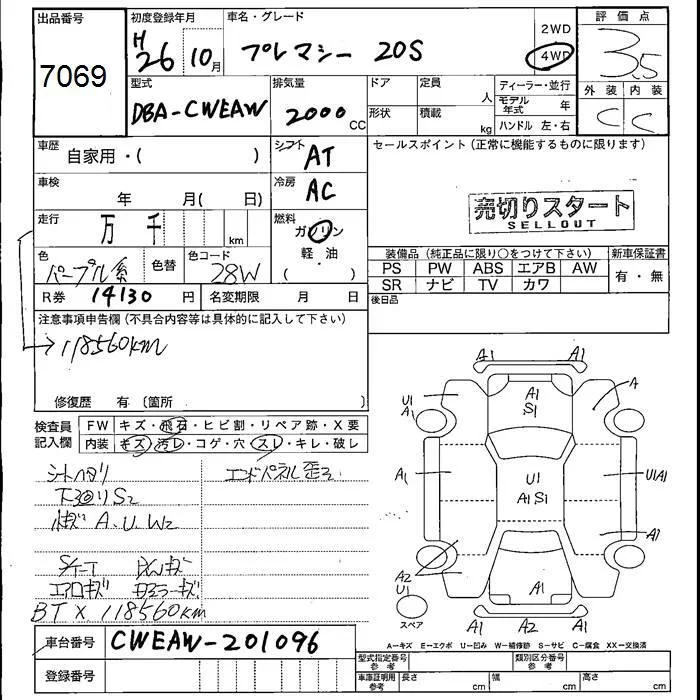 出品番号
7069
初度登録年月
H26 10月
車名・グレード
プレマシー 20S
2WD
4WD
評価点
3.5
外装 内装
C C
型式
DBA-CWEAW
排気量
2000 CC
ドア
形状
定員
人
積載
kg
ディーラー・並行
モデル年式 年
ハンドル 左・右
車歴
自家用・( )
シフト
AT
車検
年 月( 日)
冷房
AC
走行
万 千 km
燃料
ガソリン
軽・油
( )
色
パープル系
色替
色コード
28W
R券 14130 円
名変期限 月 日
セールスポイント (正常に機能するものに限ります)
売切りスタート
SELLOUT
装備品 (純正品に限り○をつけて下さい)
PS PW ABS エアB AW
SR ナビ TV カワ
新車保証書
有・無
後日品
注意事項申告欄 (不具合内容等は具体的に記入して下さい)
118560km
修復歴 有 〔箇所 〕
検査員
記入欄
FW キズ・飛石・ヒビ割・リペア跡・X要
内装 キズ・汚レ・コゲ・穴・スレ・キレ・破レ
シートヘタリ
エンドパネル歪ミ
下廻りS2
小キズ A.U.W2
エアロキズ
BTX 118560km
A1 A1
U1
A1
A1
S1
A
A1
U1
A1S1
U1A1
A1
A2
U1
A1
スペア
A1 A2 A1
A=キズ E=エクボ U=凹み W=補修跡 S=サビ C=腐食 XX=交換済
車台番号
CWEAW-201096
登録番号
型式指定番号
参考
類別区分番号
参考
車庫証明用
参考
長さ cm
幅 cm
高さ cm